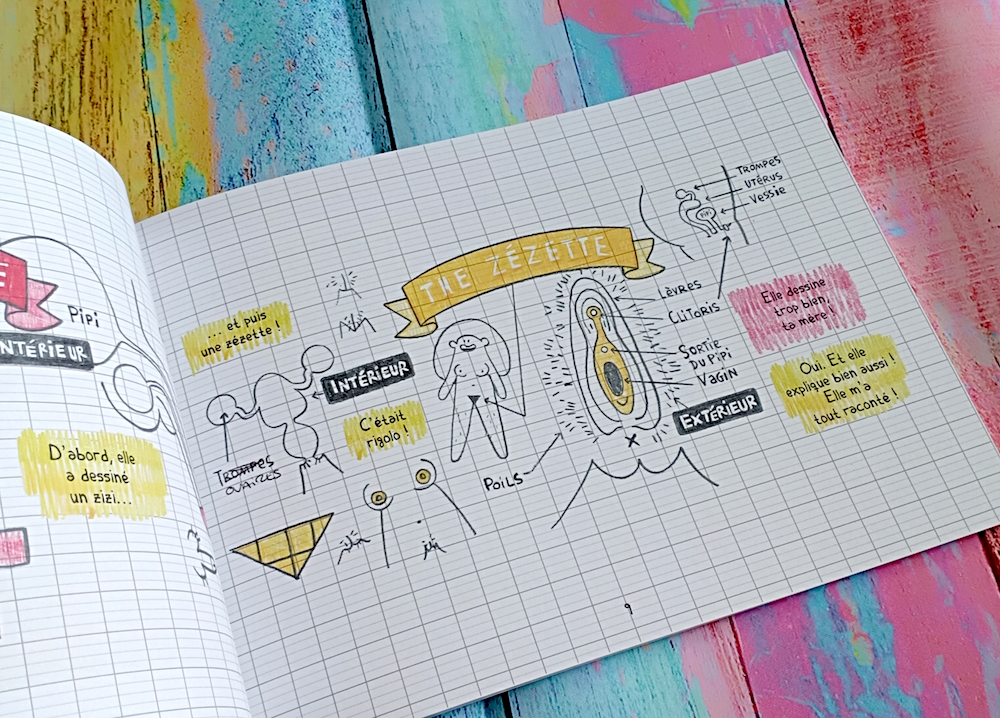 E
Pipi
INTÉRIEUR
D'abord, elle
a dessiné
un zizi...
... et puis
une zézette !
THE ZÉZETTE
INTÉRIEUR
TROMPES
OVAIRES
C'était
rigolo !
POILS
TROMPES
UTÉRUS
VESSIE
PiPi
LÈVRES
CLITORIS
SORTIE
DU PIPI
VAGIN
EXTÉRIEUR
Elle dessine
trop bien,
ta mère !
Oui. Et elle
explique bien aussi !
Elle m'a
tout raconté !
9